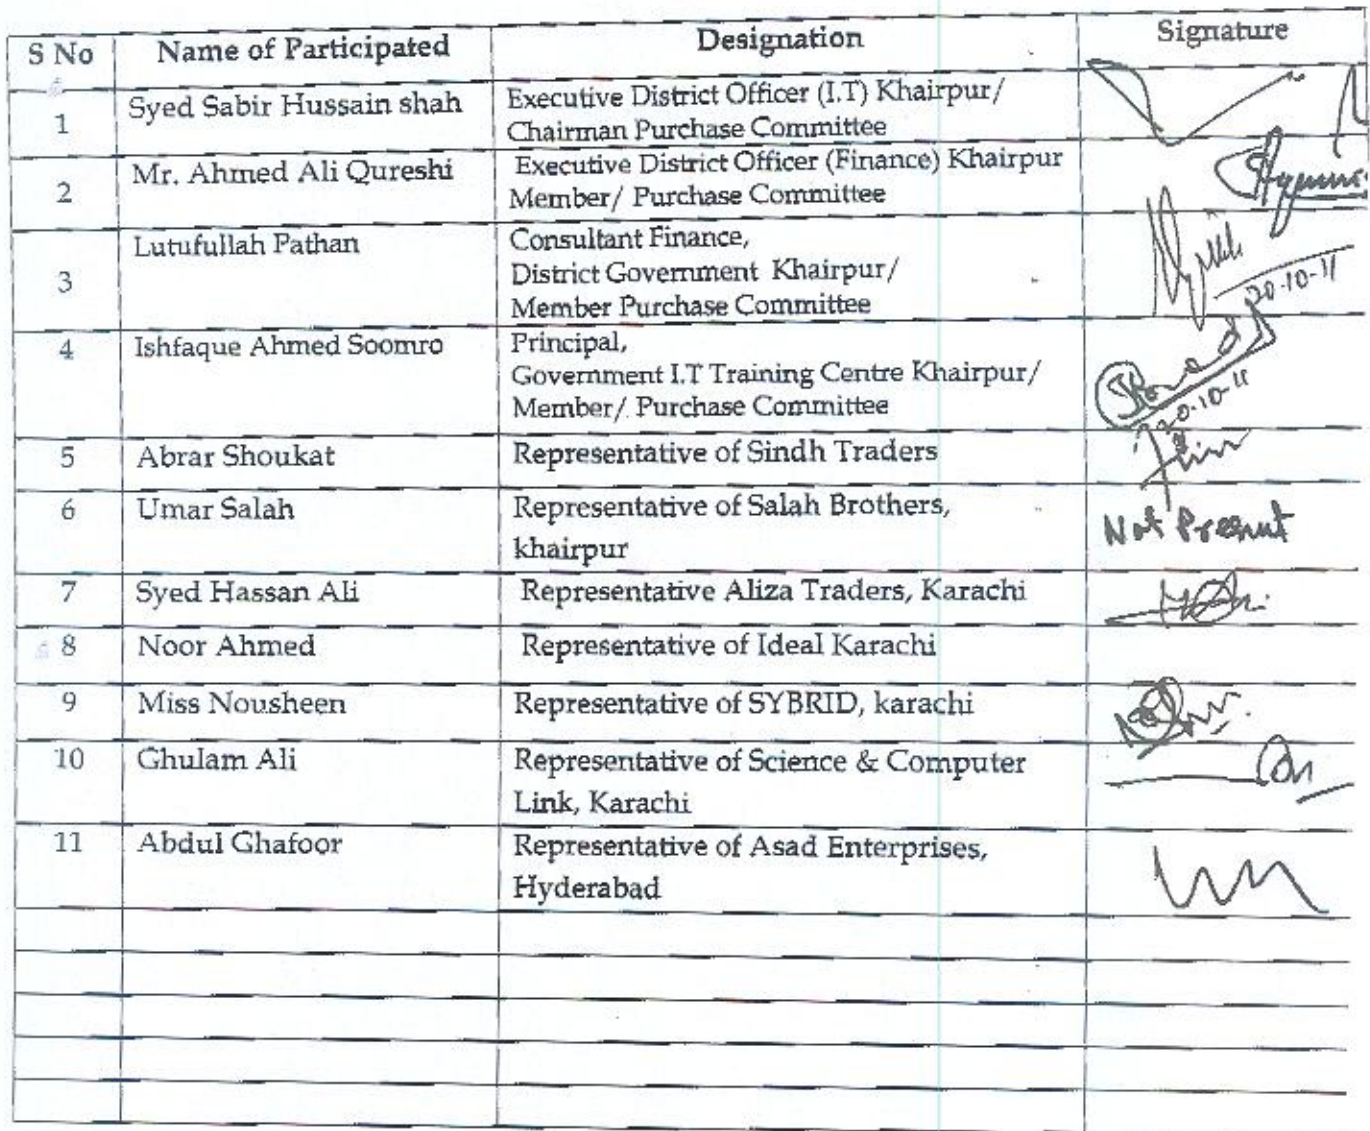 S No Name of Participated Designation Signature
1 Syed Sabir Hussain shah Executive District Officer (I.T) Khairpur/
Chairman Purchase Committee
2 Mr. Ahmed Ali Qureshi Executive District Officer (Finance) Khairpur
Member/ Purchase Committee
3 Lutufullah Pathan Consultant Finance,
District Government Khairpur/
Member Purchase Committee
20-10-11
4 Ishfaque Ahmed Soomro Principal,
Government I.T Training Centre Khairpur/
Member/ Purchase Committee
20-10-11
5 Abrar Shoukat Representative of Sindh Traders
6 Umar Salah Representative of Salah Brothers,
khairpur
Not Present
7 Syed Hassan Ali Representative Aliza Traders, Karachi
8 Noor Ahmed Representative of Ideal Karachi
9 Miss Nousheen Representative of SYBRID, karachi
10 Ghulam Ali Representative of Science & Computer
Link, Karachi
11 Abdul Ghafoor Representative of Asad Enterprises,
Hyderabad